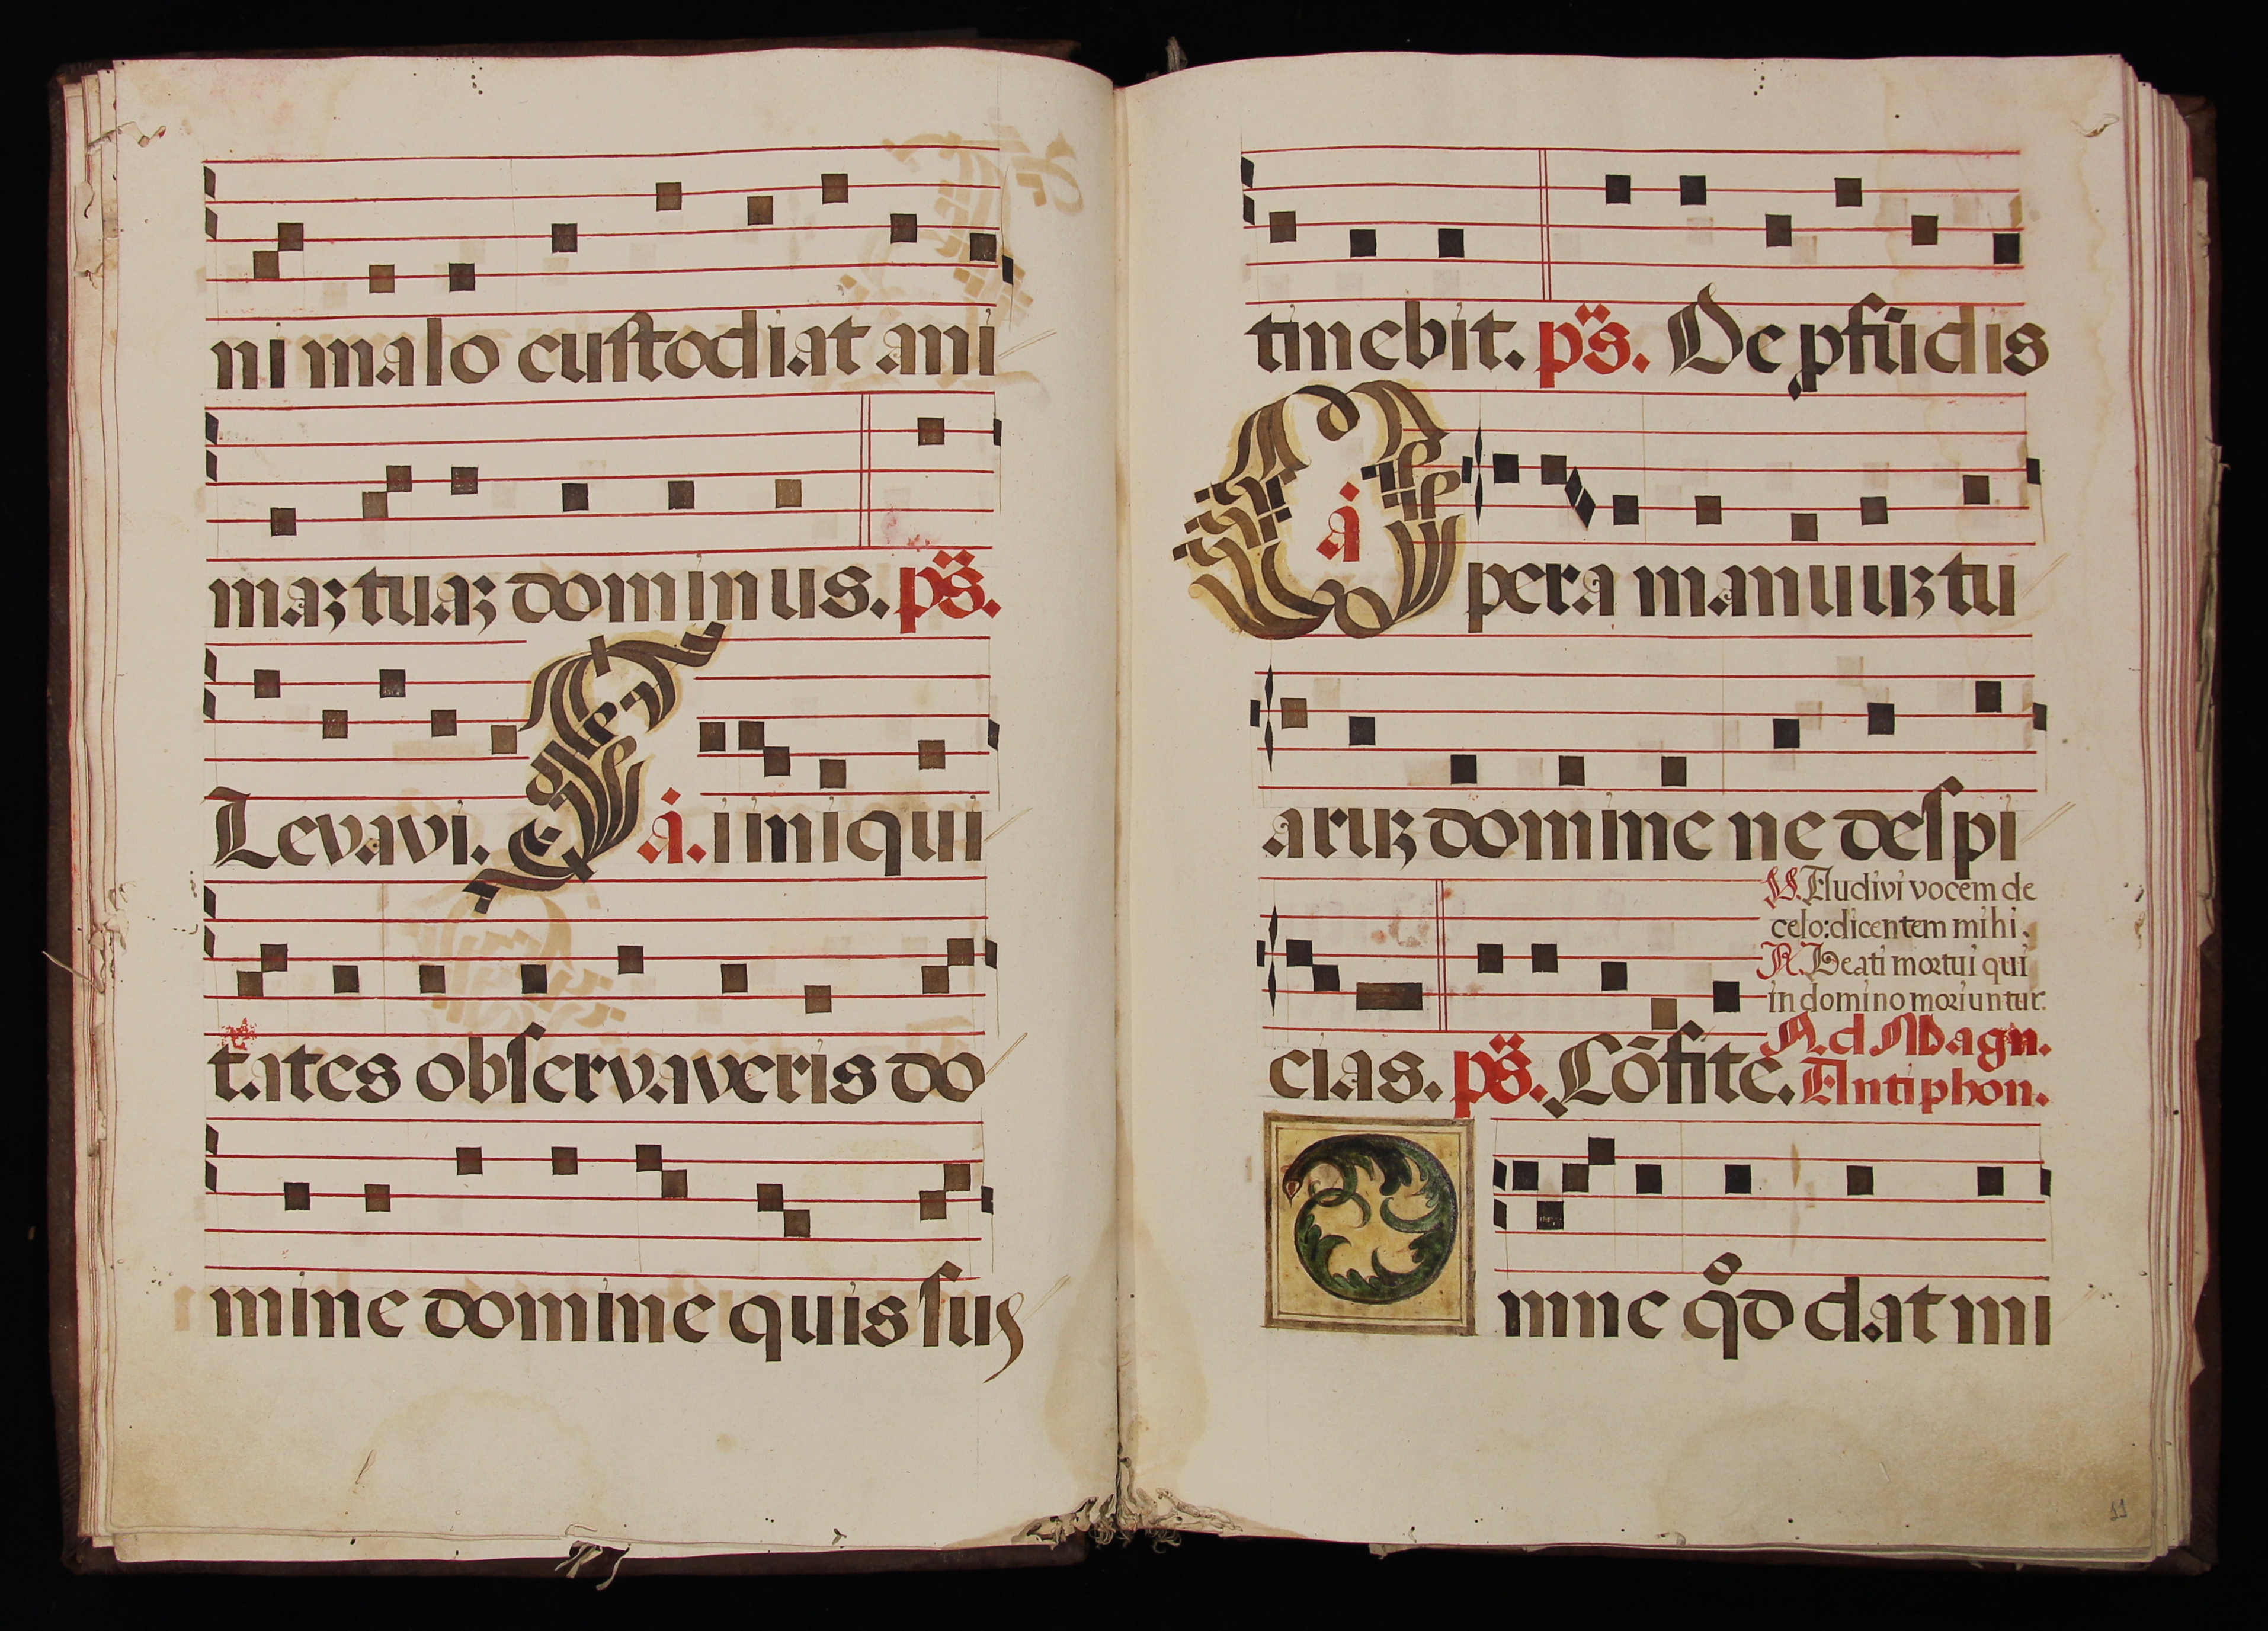 ni malo custodiat ani
maʒ tuaʒ dominus. ps̈.
Levavi. S a. i iniqui
tates observaveris do
mine domine quis sus
tinebit. ps̈. De pfūdis
O a pera manuuʒ tu
aruʒ domine ne despi
cias. ps̈. Cōfite.
V. Audivi vocem de
celo: dicentem mihi.
R. Beati mortui qui
in domino moriuntur.
Ad Magn.
Antiphon.
O mne qͦd dat mi
11